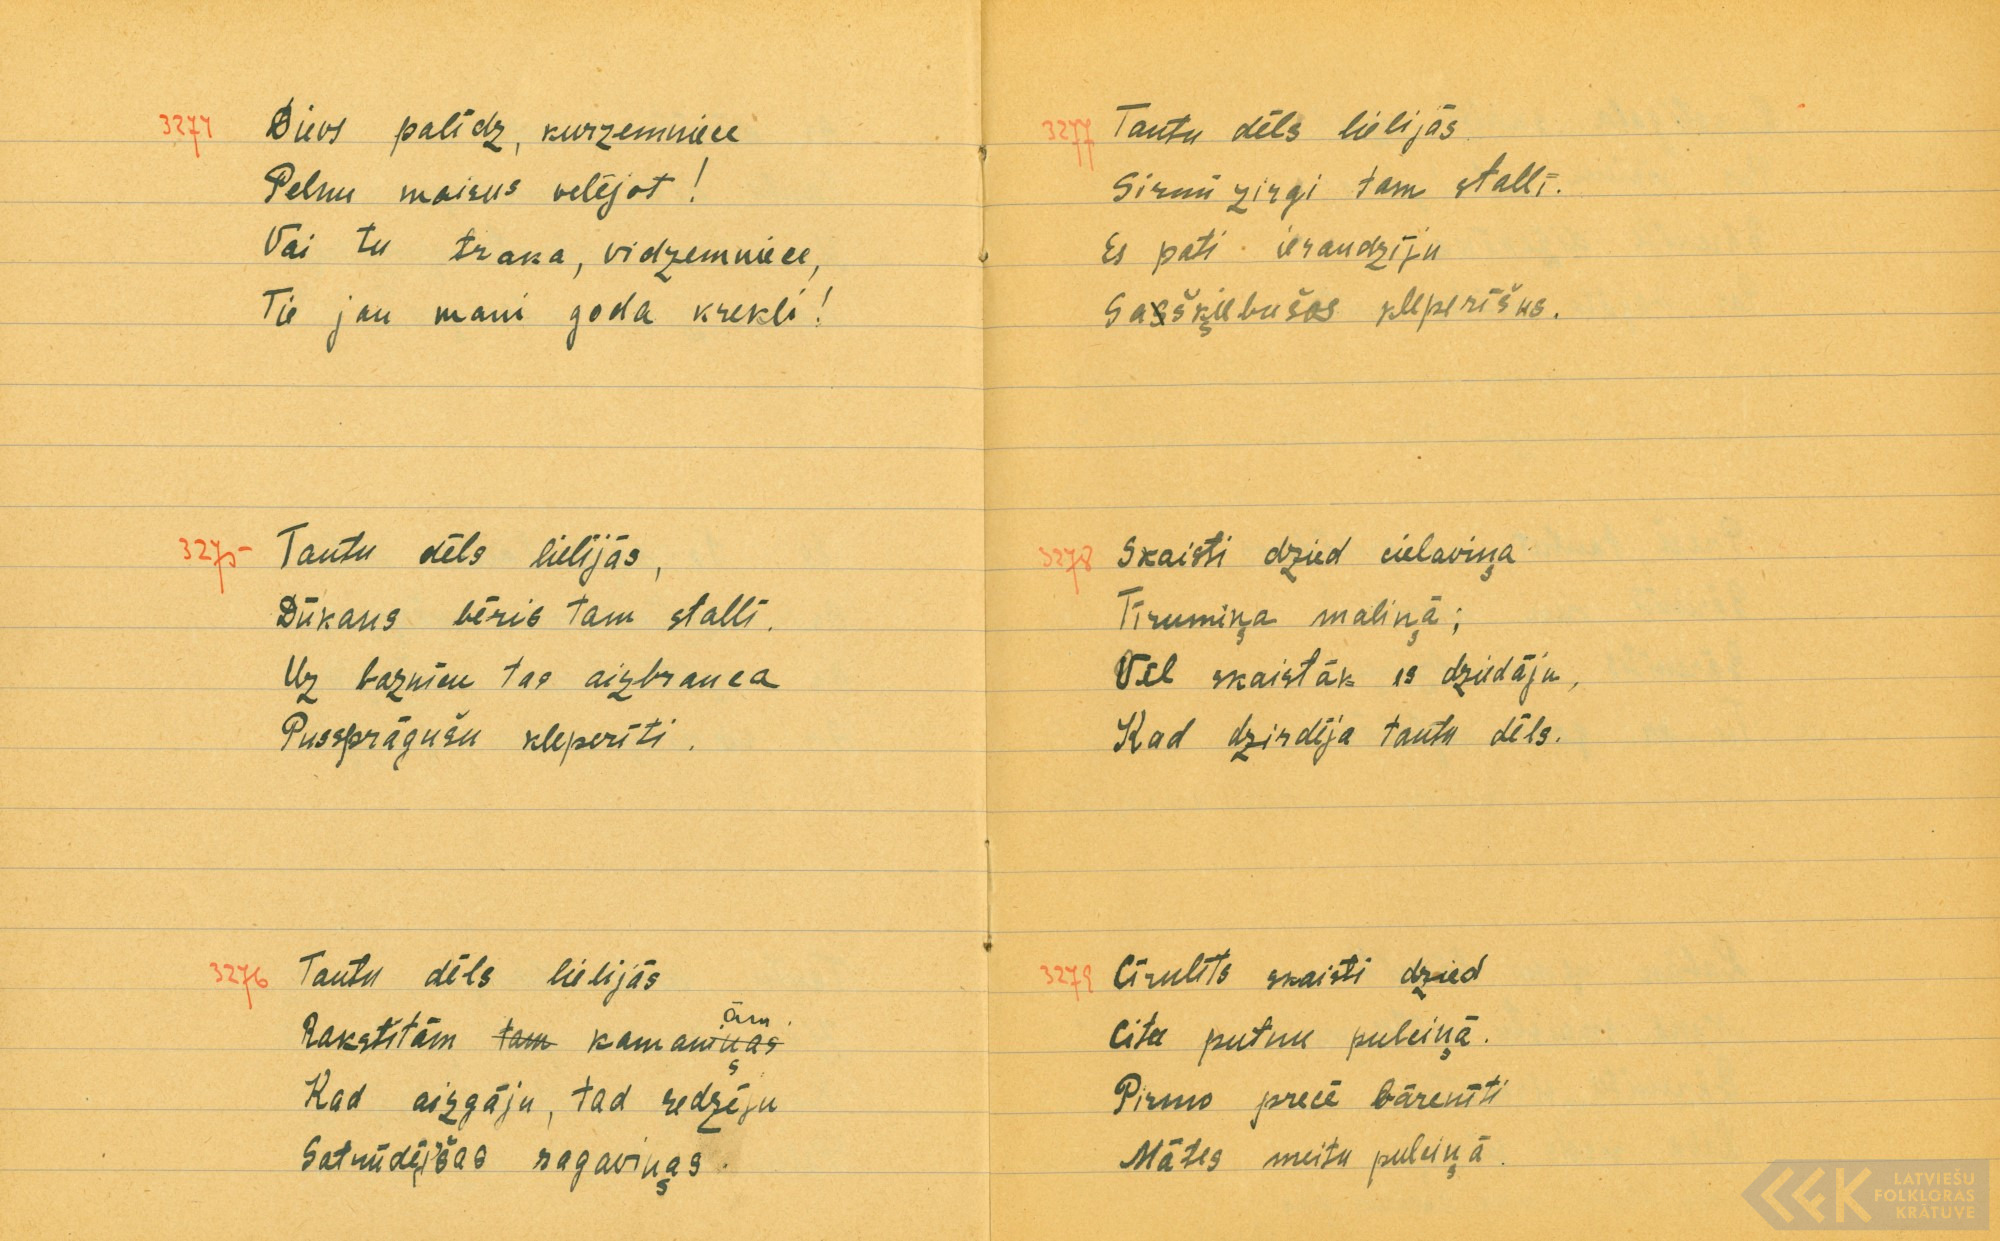 3274
Dievs palīdz, kurzemniece
Pelnu maisus velējot!
Vai tu traka, vidzemniece,
Tie jau mani goda krekli!
3275
Tautu dēls lielījās,
Dūkans bēris tam stallī.
Uz baznīcu tas aizbrauca
Pussprāgušu kleperīti.
3276
Tautu dēls lielijās
Rakstītām tam kamaniņas ām
Kad aizgāju, tad redzēju
Satrūdējšas ragaviņas.
3277
Tautu dēls lielijās
Sirmi zirgi tam stallī.
Es pati ieraudzīju
Sasšķiebušos kleperīšus.
3278
Skaisti dzied cielaviņa
Tīrumiņa maliņā;
Vēl skaistāk es dziedāju,
Kad dzirdēja tautu dēls.
3279
Cīrulīts skaisti dzied
Citu putnu pulciņā.
Pirmo precē bārenīti
Mātes meitu pulciņā.
LATVIEŠU
FOLKLORAS
KRĀTUVE